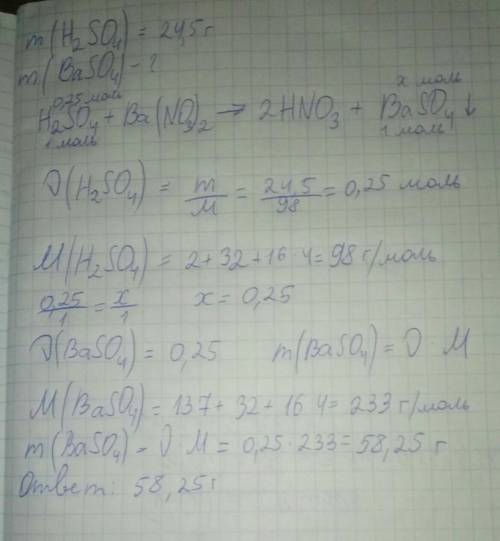 m(H₂SO₄) = 24,5 г
m(BaSO₄) - ?
0,25 моль x моль
H₂SO₄ + Ba(NO₃)₂ → 2HNO₃ + BaSO₄↓
1 моль 1 моль
ν(H₂SO₄) = m/M = 24,5/98 = 0,25 моль
M(H₂SO₄) = 2+32+16·4=98 г/моль
0,25/1 = x/1 x = 0,25
ν(BaSO₄) = 0,25 m(BaSO₄) = ν · M
M(BaSO₄) = 137+32+16·4=233 г/моль
m(BaSO₄) = ν·M = 0,25·233=58,25 г
Ответ: 58,25г